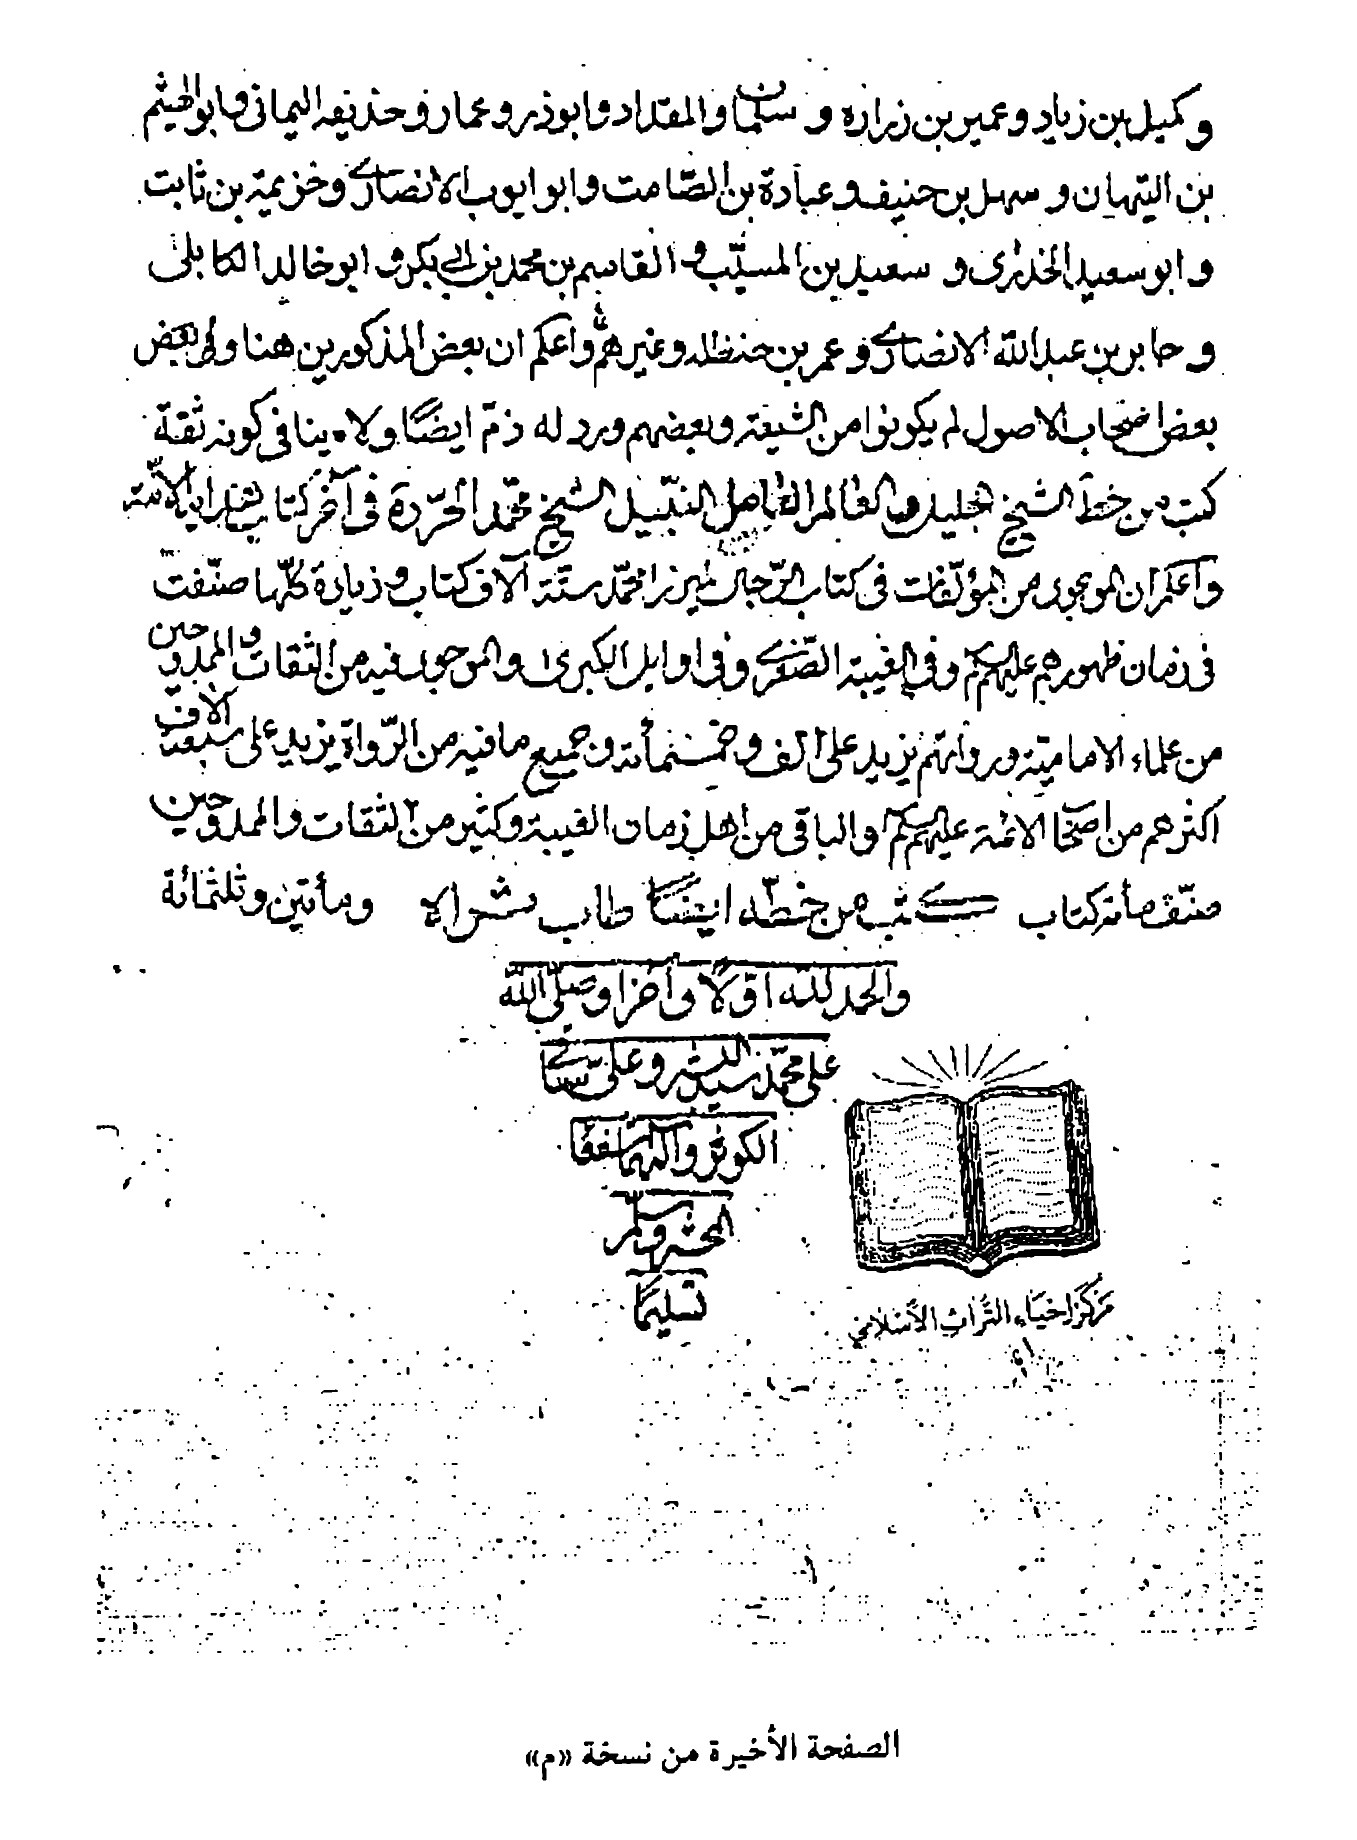 وكميل بن زياد وعمير بن زرارة و سلمان والمقداد وابوذر وعمار وحذيفه اليمانى وابوالهيثم
بن التيهان و سهل بن حنيف و عبادة بن الصّامت وابو ايوب الانصارى وخزيمة بن ثابت
و ابو سعيد الخدرى و سعيد بن المسيّب و القاسم بن محمد بن ابى بكر و ابو خالد الكابلى
و جابر بن عبدالله الانصارى و عمر بن حنظله وغيرهم واعلم ان بعض المذكورين هنا وفى بعض
بعض اصحاب الاصول لم يكونوا من الشيعة وبعضهم ورد له ذمّ ايضًا ولا ينافى كونه ثقة
كتب من خطّ الشيخ الجليل والعالم الفاضل النبيل الشيخ محمّد الحرّ رة فى آخر كتاب
واعلم ان الموجود من المؤلّفات فى كتاب الرّجال لميرزا محمّد ستّة آلاف كتاب وزيادة كلّها صنّفت
فى زمان ظهورهم عليهم وفى الغيبة الصّغرى وفى اوايل الكبرى والموجود فيه من الثقات والممدوحين
من علماء الاماميّة ورواتهم يزيد على الف وخمسمأة وجميع ما فيه من الرّواة يزيد على سبعة آلاف
اكثرهم من اصحاب الائمة عليهم والباقى من اهل زمان الغيبة وكثير من الثقات والممدوحين
صنّف مأة كتاب ومأتين وثلثمائة كتب من خطّه ايضًا طاب
والحمد لله اوّلًا وآخرا وصلّى الله
على محمّد سيد البشر وعلى ساقى
الكوثر وآلهما شفعاء
المحشر وسلم
تسليمًا
مركز احياء التراث الاسلامي
الصفحة الأخيرة من نسخة «م»